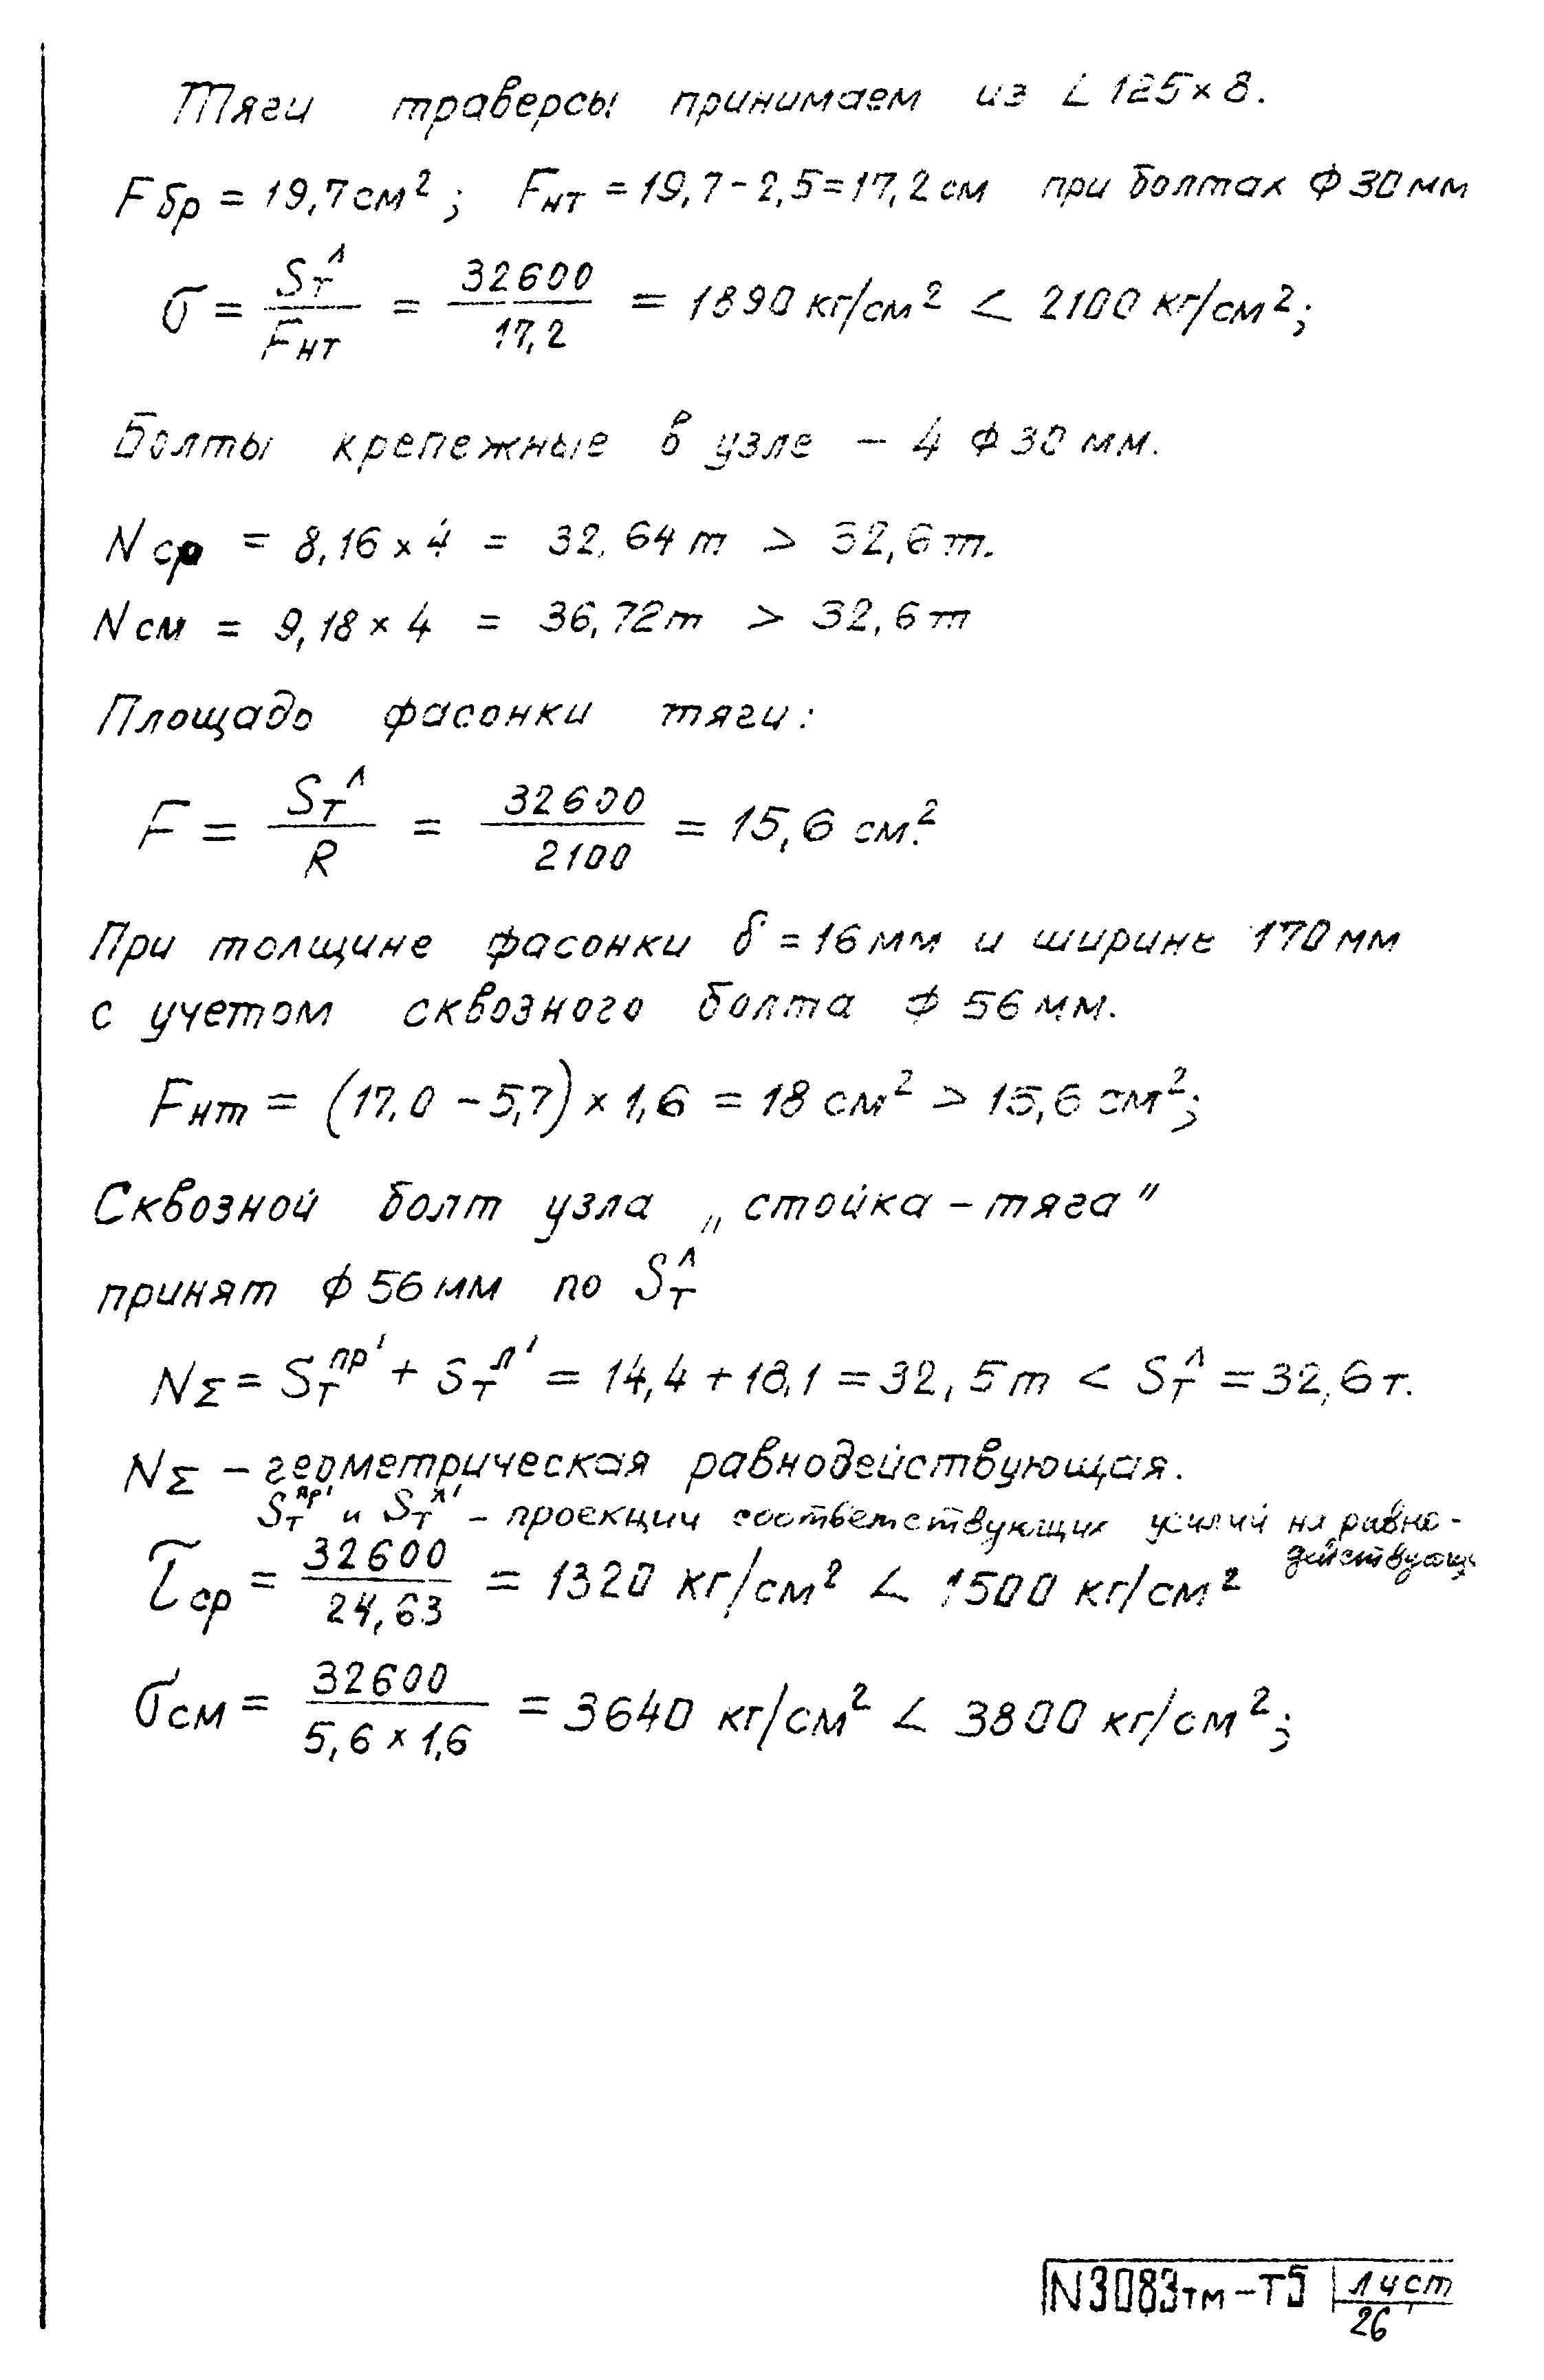 Тяги траверсы принимаем из L 125×8.
Fбр = 19,7 см²; Fнт = 19,7-2,5=17,2 см при болтах ϕ 30 мм
σ = Sт^л / Fнт = 32600 / 17,2 = 1890 кг/см² < 2100 кг/см²;
Болты крепежные в узле – 4 ϕ 30 мм.
Nср = 8,16 × 4 = 32,64 т > 32,6 т.
Nсм = 9,18 × 4 = 36,72 т > 32,6 т
Площадь фасонки тяги:
F = Sт^л / R = 32600 / 2100 = 15,6 см.²
При толщине фасонки δ = 16 мм и ширине 170 мм
с учетом сквозного болта ϕ 56 мм.
Fнт = (17,0 – 5,7) × 1,6 = 18 см² > 15,6 см²;
Сквозной болт узла „стойка – тяга"
принят ϕ 56 мм по Sт^л
NΣ = Sт^пр' + Sт^л' = 14,4 + 18,1 = 32,5 т < Sт^л = 32,6 т.
NΣ – геометрическая равнодействующая.
Sт^пр' и Sт^л' – проекции соответствующих усилий на равно-
действующ
τср = 32600 / 24,63 = 1320 кг/см² < 1500 кг/см²
σсм = 32600 / 5,6 × 1,6 = 3640 кг/см² < 3800 кг/см²;
N3083тм – Т5 лист
26